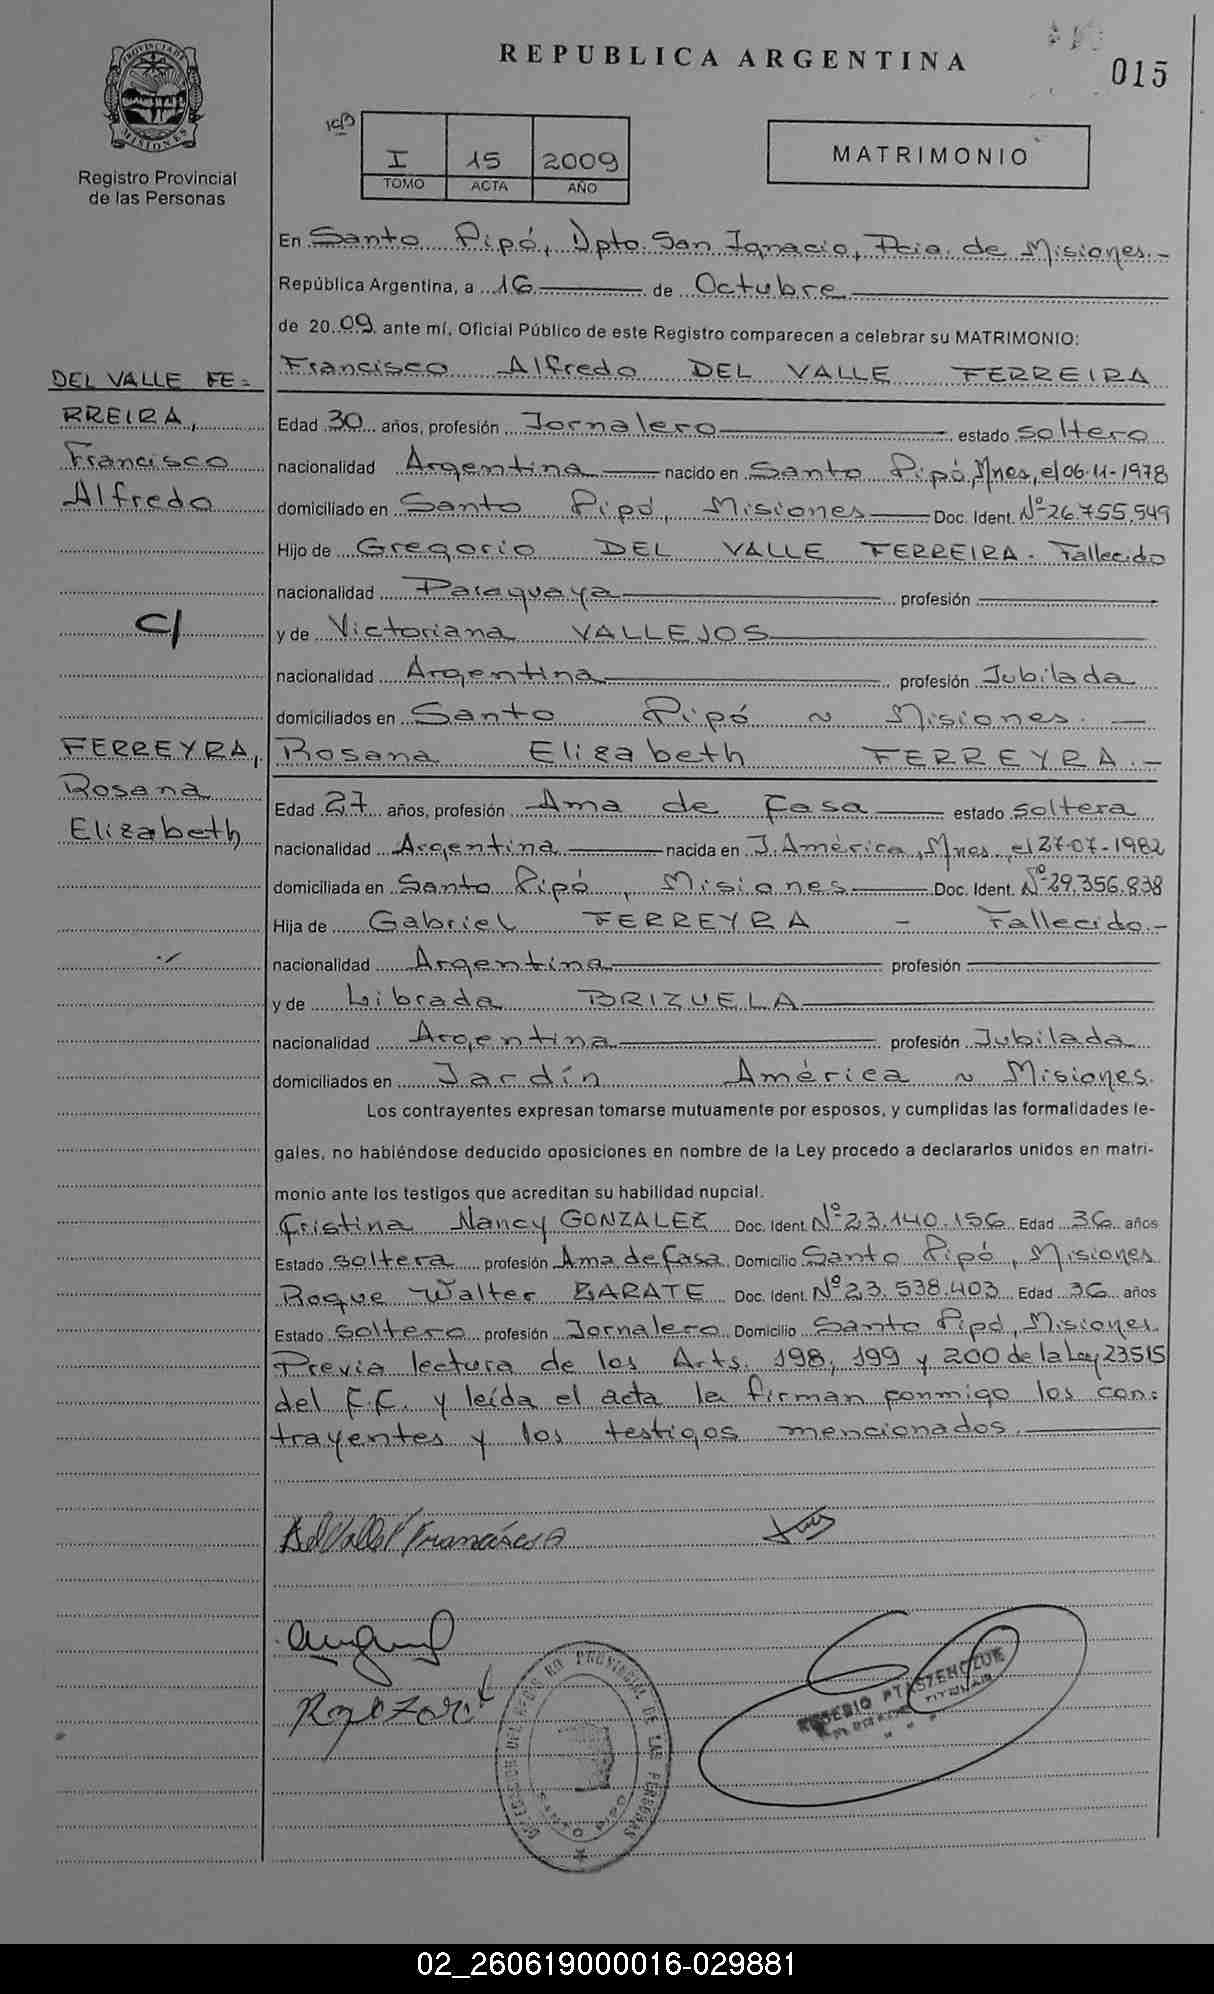 REPUBLICA ARGENTINA
015
PROVINCIA DE MISIONES
Registro Provincial
de las Personas
I 15 2009
TOMO ACTA AÑO
MATRIMONIO
En Santo Pipó, Dpto. San Ignacio, Pcia. de Misiones.-
República Argentina, a 16 de Octubre
de 2009 ante mí, Oficial Público de este Registro comparecen a celebrar su MATRIMONIO:
Francisco Alfredo DEL VALLE FERREIRA
DEL VALLE FE=
RREIRA,
Francisco
Alfredo
C/
FERREYRA,
Rosana
Elizabeth
Edad 30 años, profesión Jornalero estado soltero
nacionalidad Argentina nacido en Santo Pipó, Mnes, el 06-11-1978
domiciliado en Santo Pipó, Misiones Doc. Ident. Nº 26.755.549
Hijo de Gregorio DEL VALLE FERREIRA - Fallecido
nacionalidad Paraguaya profesión
y de Victoriana VALLEJOS
nacionalidad Argentina profesión Jubilada
domiciliados en Santo Pipó ~ Misiones. -
Rosana Elizabeth FERREYRA.-
Edad 27 años, profesión Ama de Casa estado soltera
nacionalidad Argentina nacida en J. América, Mnes, el 27-07-1982
domiciliada en Santo Pipó, Misiones Doc. Ident. Nº 29.356.838
Hija de Gabriel FERREYRA - Fallecido.-
nacionalidad Argentina profesión
y de Librada BRIZUELA
nacionalidad Argentina profesión Jubilada
domiciliados en Jardín América ~ Misiones.
Los contrayentes expresan tomarse mutuamente por esposos, y cumplidas las formalidades le-
gales, no habiéndose deducido oposiciones en nombre de la Ley procedo a declararlos unidos en matri-
monio ante los testigos que acreditan su habilidad nupcial.
Cristina Nancy GONZALEZ Doc. Ident. Nº 23.140.156 Edad 36 años
Estado soltera profesión Ama de Casa Domicilio Santo Pipó, Misiones
Roque Walter ZARATE Doc. Ident. Nº 23.538.403 Edad 36 años
Estado soltero profesión Jornalero Domicilio Santo Pipó, Misiones
Previa lectura de los Arts. 198, 199 y 200 de la Ley 23515
del C.C. y leída el acta la firman conmigo los con=
trayentes y los testigos mencionados.
Del Valle F Francisco A
REGISTRO PROVINCIAL DE LAS PERSONAS
PTASZENCZUK
TITULAR
02_260619000016-029881